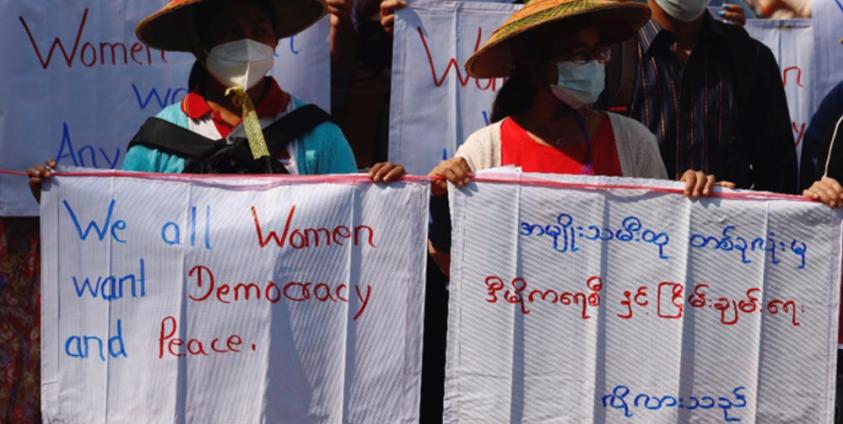 Women
wa
Any
We all Women
want Democracy
and Peace.
အမျိုးသမီးထု တစ်ခုလုံးမှ
ဒီမိုကရေစီ နှင့် ငြိမ်းချမ်းရေး
လိုလားသည်